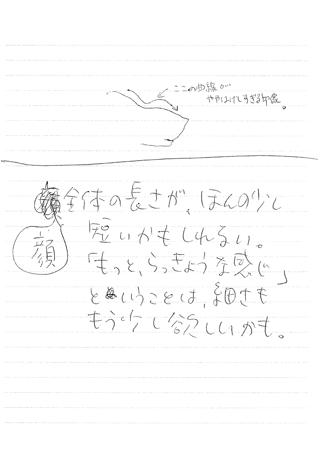 ここの曲線が
ややはげしすぎる印象。
顔全体の長さが、ほんの少し
短いかもしれない。
「もっと、らっきょうな感じ」
ということは、細さも
もう少し欲しいかも。